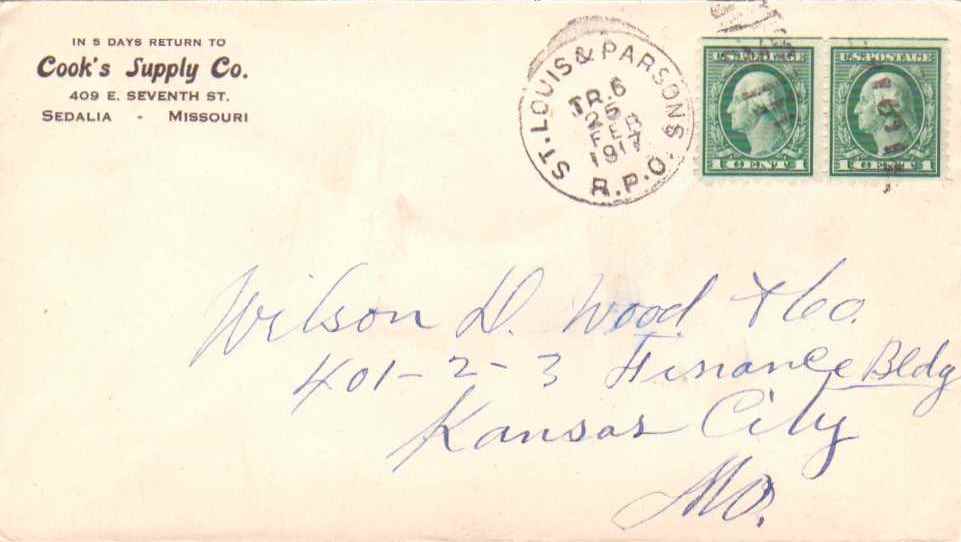 IN 5 DAYS RETURN TO
Cook's Supply Co.
409 E. SEVENTH ST.
SEDALIA - MISSOURI
ST. LOUIS & PARSONS
TR. 6
FEB
1917
R.P.O.
U.S. POSTAGE
1 CENT 1
U.S. POSTAGE
1 CENT 1
Wilson D. Wood & Co.
401-2-3 Finance Bldg
Kansas City
Mo.